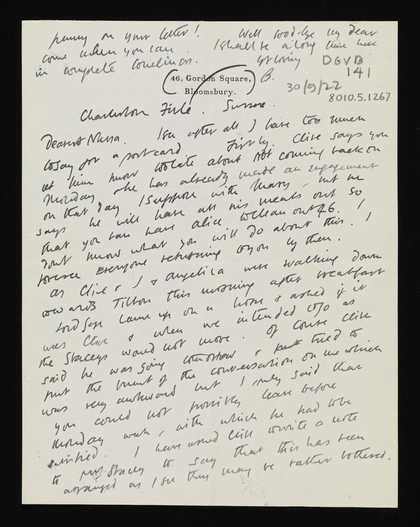 penny on your letter! Well goodbye my dear
come when you can. I shall be along time here
in complete loneliness. Yr loving
B.
DGVB
141
30/9/22
8010.5.1267
46, Gordon Square,
Bloomsbury.
Charleston Firle. Sussex.
Dearest Nessa. I see after all I have too much
to say for a postcard. Firstly. Clive says you
let him know too late about not coming back on
Thursday & he has already made an engagement
on that day I suppose with Mary, but he
says he will have all his meals out so
that you can have Alice. I
don't know what you will do about this. I
foresee everyone returning by then.
As Clive & I & Angelica were walking down
towards Tilton this morning after breakfast
Lord Gage came up on a horse & asked if it
was Clive & when we intended to go as
the Staceys would not move. Of course Clive
said he was going tomorrow & tried to
put the brunt of the conversation on me which
was very awkward but I only said that
you could not possibly leave before
Thursday week, with which he had to be
satisfied. I have asked Clive to write a note
to Mrs Stacey to say that this has been
arranged as I see they may be rather bothered.